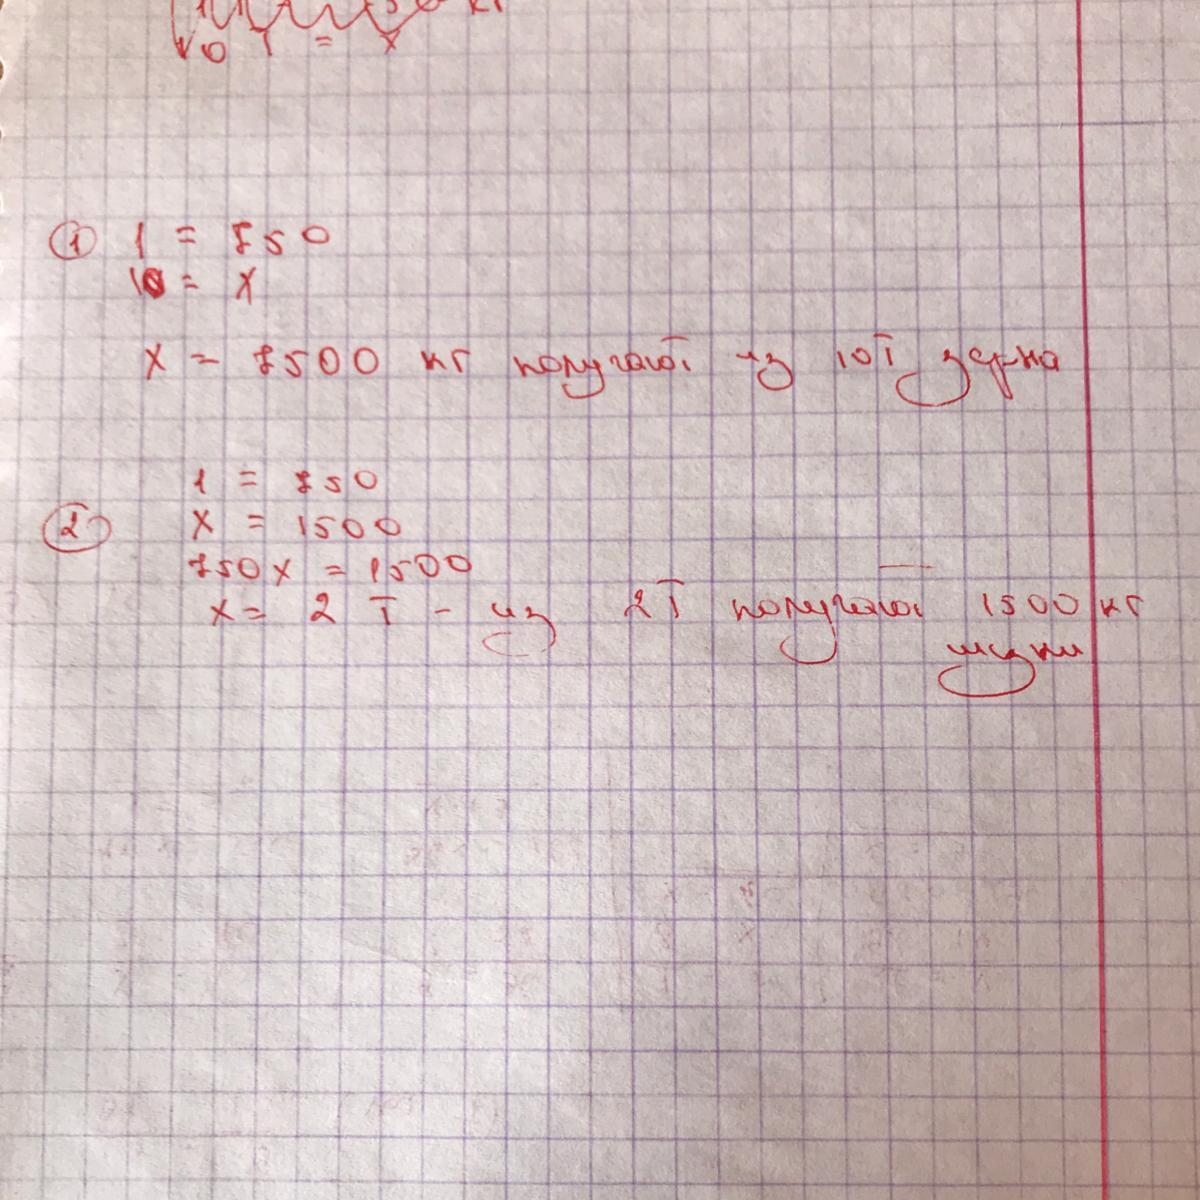 0 т = х
① 1 = 750
10 = х
х = 7500 кг получают из 10т зерна
1 = 750
② х = 1500
750х = 1500
х = 2 т - из 2т получают 1500 кг
муки